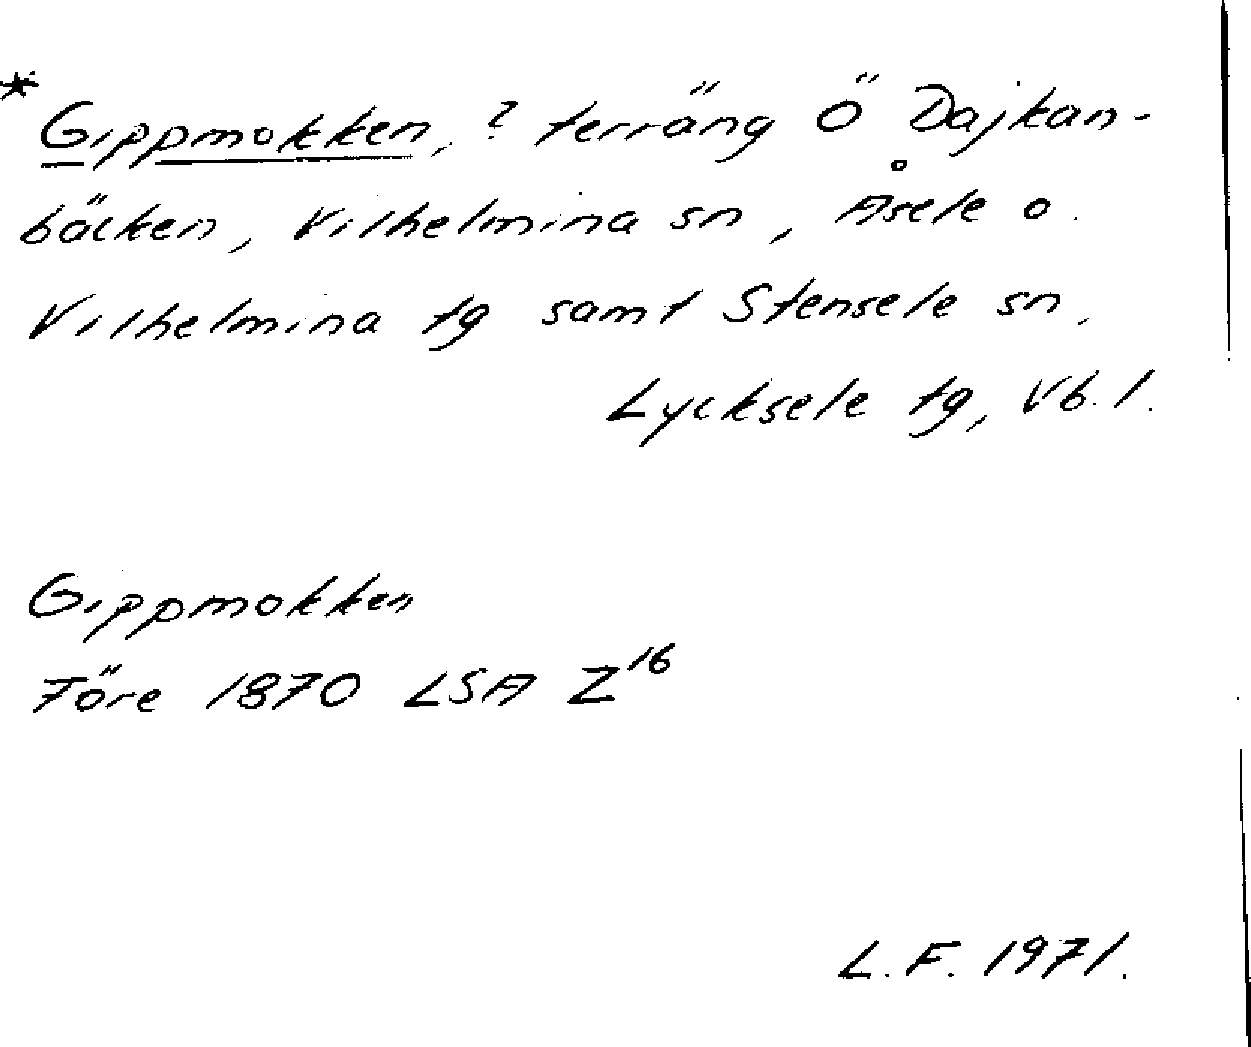 * Gippmokken, ? terräng Ö Dajkan-
bäcken, Vilhelmina sn, Åsele o.
Vilhelmina tg samt Stensele sn,
Lycksele tg, Vb. l.
Gippmokken
Före 1870 LSA Z16
L. F. 1971.